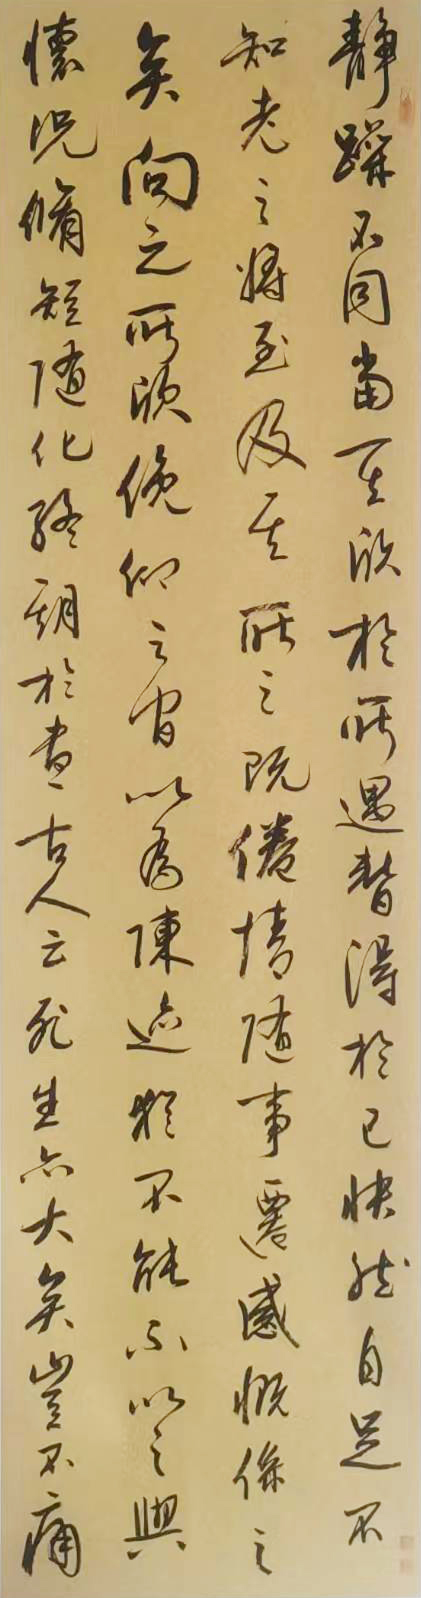 静躁不同當其欣於所遇暫得於己快然自足不
知老之將至及其所之既倦情隨事遷感慨係之
矣向之所欣俛仰之間以為陳迹猶不能不以之興
懷況脩短隨化終期於盡古人云死生亦大矣豈不痛